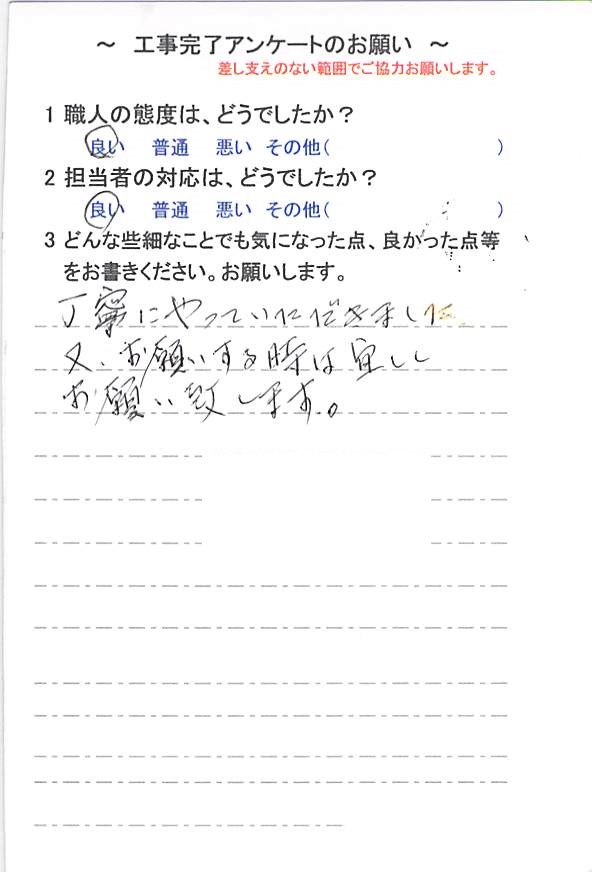 ～ 工事完了アンケートのお願い ～
差し支えのない範囲でご協力お願いします。
1 職人の態度は、どうでしたか？
良い 普通 悪い その他( )
2 担当者の対応は、どうでしたか？
良い 普通 悪い その他( )
3 どんな些細なことでも気になった点、良かった点等
をお書きください。お願いします。
丁寧にやっていただきました
又、お願いする時は宜しし
お願い致します。